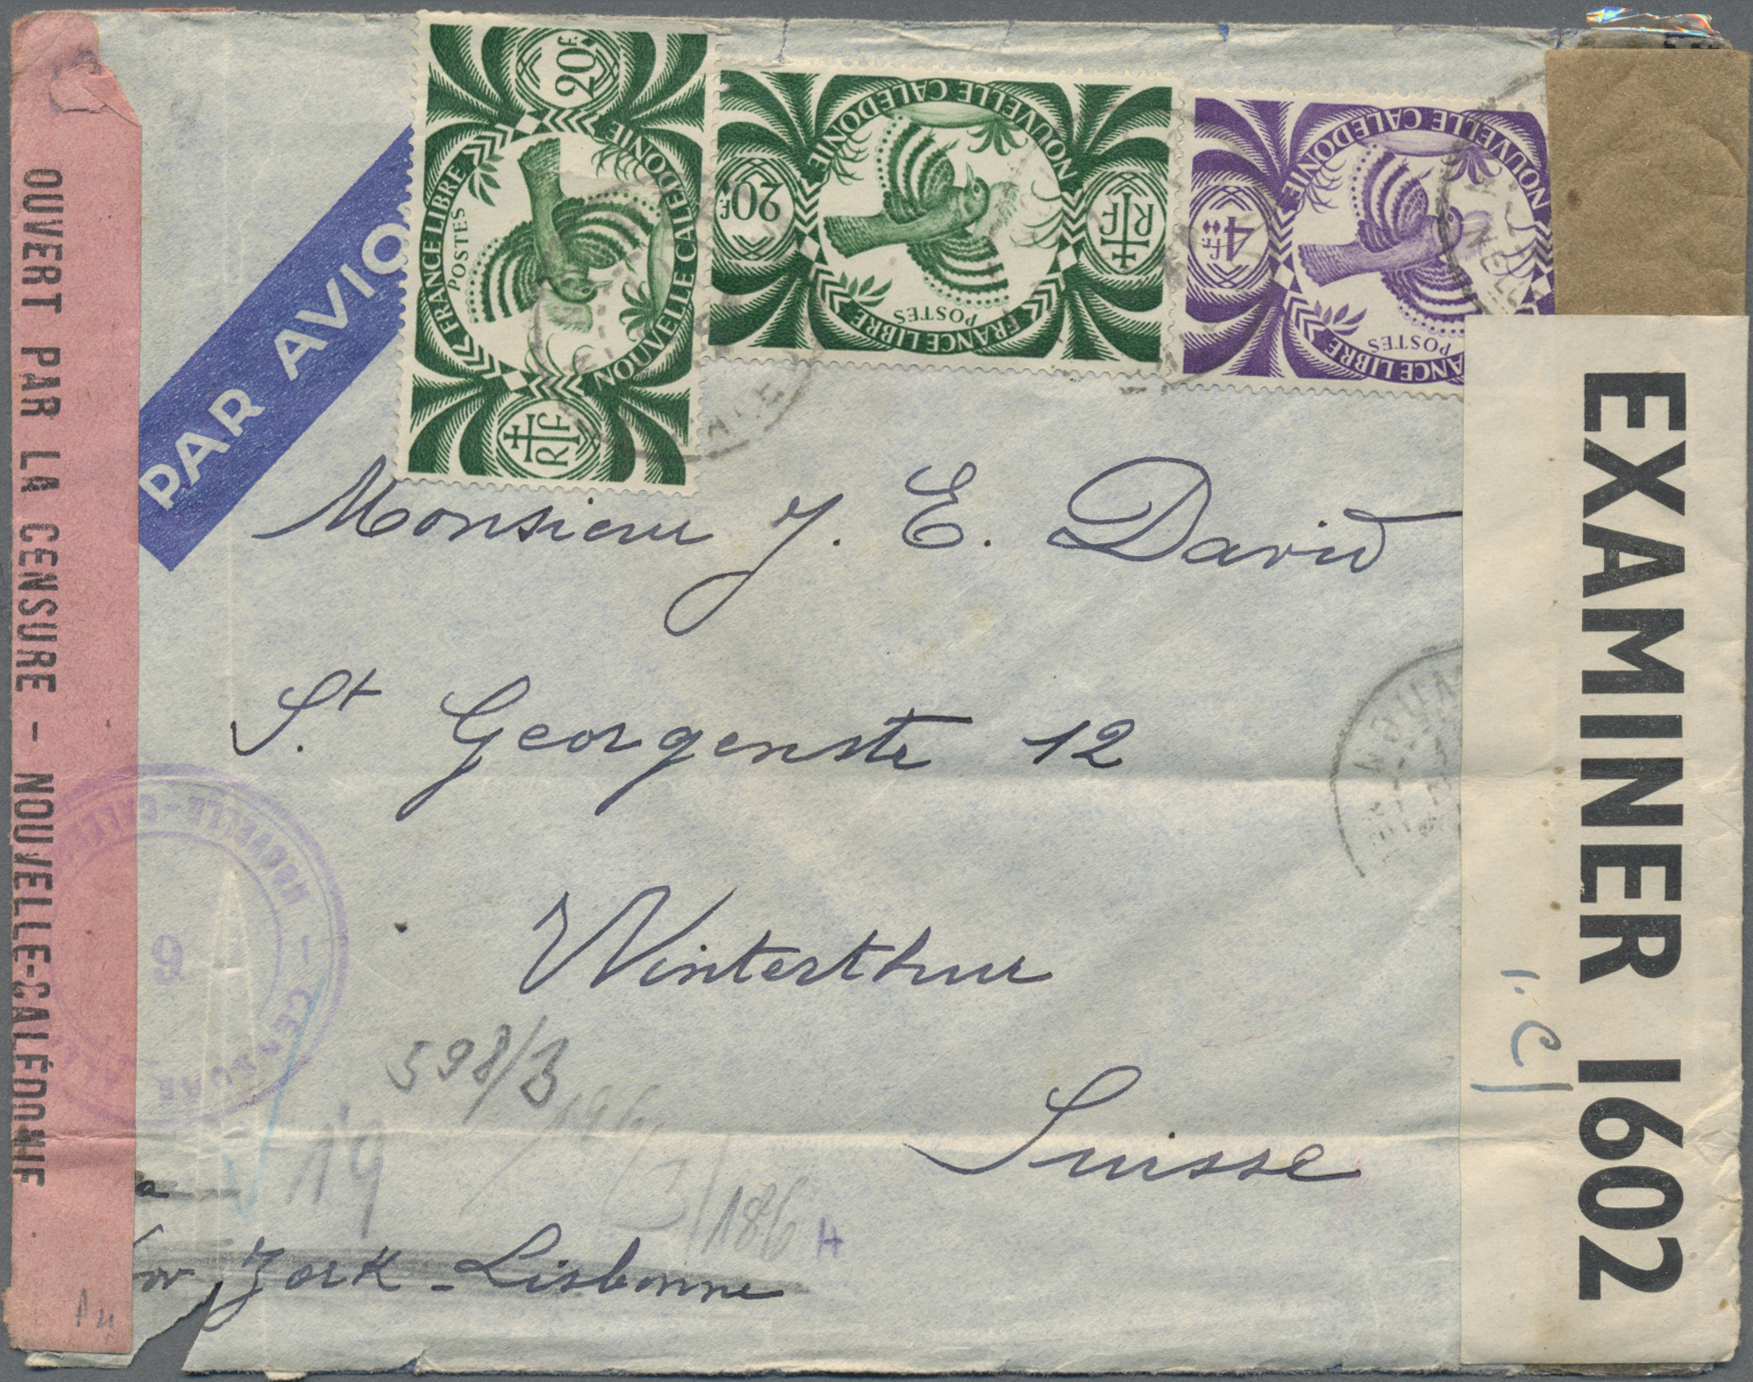 OUVERT PAR LA CENSURE - NOUVELLE-CALÉDONIE
PAR AVION
20F.
FRANCE LIBRE
POSTES
NOUVELLE CALEDONIE
RF
NOUVELLE CALEDONIE
20F.
RF
POSTES
FRANCE LIBRE
NOUVELLE CALEDONIE
4F.
POSTES
ANCE LIBRE
Monsieur J. E. David
St Georgenstr 12
Winterthur
Suisse
598/3
19
186 H
York - Lisbonne
NOUM
CENSURE
6
EXAMINER 1602